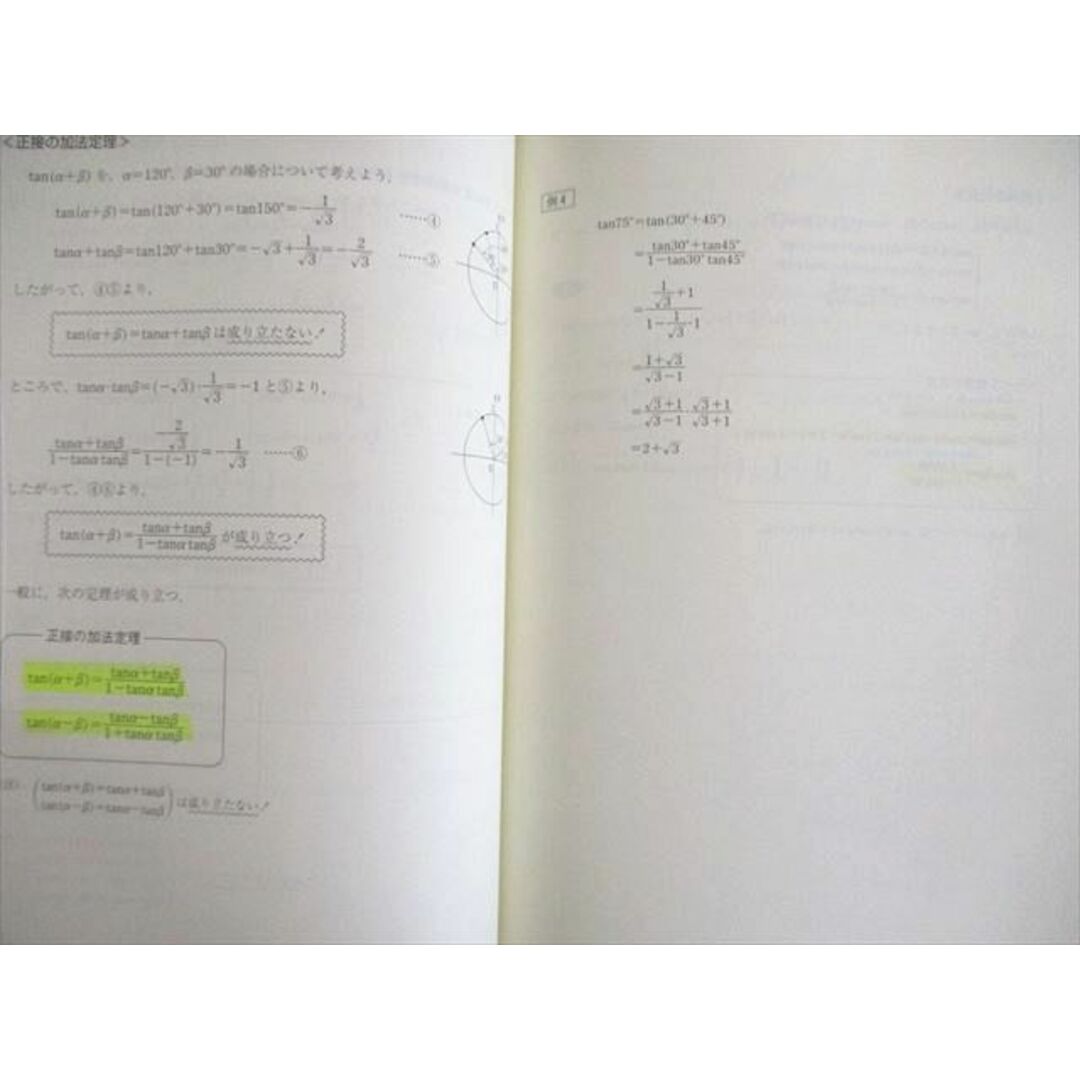 <正接の加法定理>
tan(α+β) を、α=120°, β=30° の場合について考えよう。
tan(α+β)=tan(120°+30°)=tan150°=-1/√3 ……④
tanα+tanβ=tan120°+tan30°=-√3+1/√3=-2/√3 ……⑤
したがって、④⑤より、
tan(α+β)=tanα+tanβ は成り立たない！
ところで、tanα·tanβ=(-√3)·1/√3=-1 と⑤より、
(tanα+tanβ)/(1-tanα tanβ)=(-2/√3)/(1-(-1))=-1/√3 ……⑥
したがって、④⑥より、
tan(α+β)=(tanα+tanβ)/(1-tanα tanβ) が成り立つ！
一般に、次の定理が成り立つ。
正接の加法定理
tan(α+β)=(tanα+tanβ)/(1-tanα tanβ)
tan(α-β)=(tanα-tanβ)/(1+tanα tanβ)
tan(α+β)=tanα+tanβ
tan(α-β)=tanα-tanβ
は成りたたない！
例4
tan75°=tan(30°+45°)
=(tan30°+tan45°)/(1-tan30° tan45°)
=(1/√3+1)/(1-1/√3·1)
=(1+√3)/(√3-1)
=(√3+1)/(√3-1)·(√3+1)/(√3+1)
=2+√3